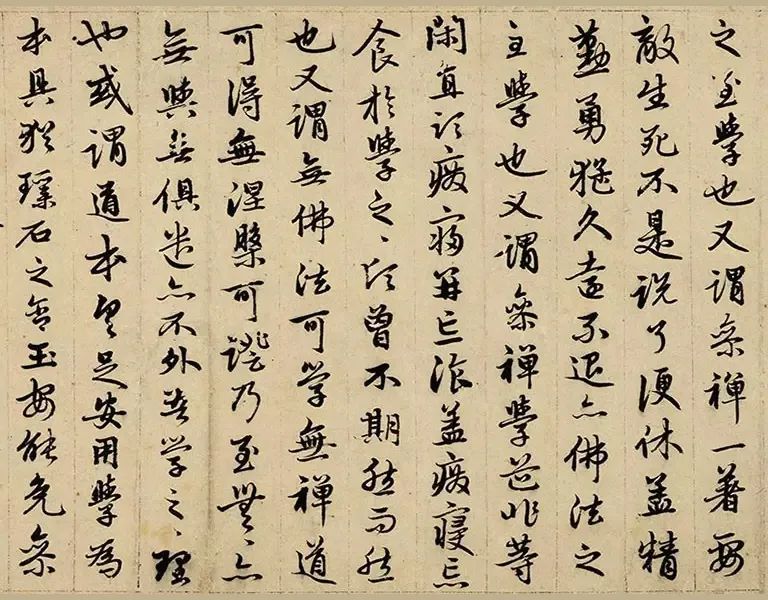 之至學也又謂參禪一著要
敵生死不是說了便休蓋精
勤勇猛久遠不退亦佛法之
主學也又謂參禪學道非等
閑直須癈寢并忘飡蓋癈寢忘
食於學之〻頃曾不期然而然
也又謂無佛法可学無禪道
可得無涅槃可證乃至無〻亦
無與無俱迷亦不外無学之〻理
也或謂道本足安用學為
本具猶璞石之含玉安能免參